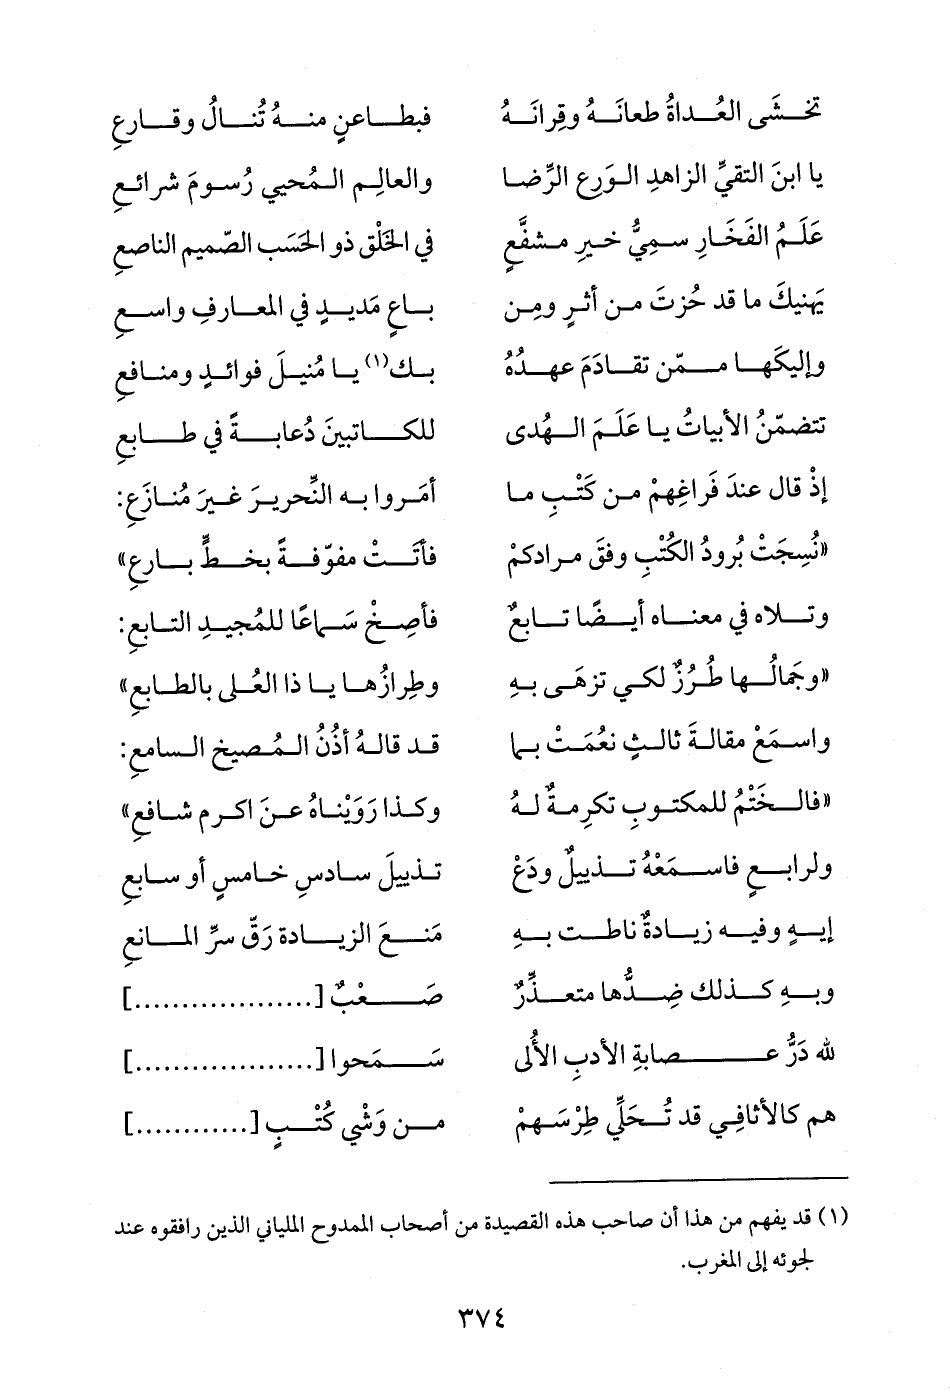 تخشَى العُداةُ طعانَهُ وقِرانَهُ فبطاعنٍ منهُ تُنالُ وقارعِ
يا ابنَ التقيِّ الزاهدِ الورعِ الرِّضا والعالِمِ المُحيي رُسومَ شرائعِ
عَلَمُ الفَخَارِ سميُّ خيرِ مشفَّعٍ في الخَلْقِ ذو الحَسَبِ الصّميمِ الناصعِ
يَهنيكَ ما قد حُزتَ من أثرٍ ومِن باعٍ مَديدٍ في المعارفِ واسعِ
وإليكَها ممّن تقادَمَ عهدُهُ بكَ(١) يا مُنيلَ فوائدٍ ومنافعِ
تتضمّنُ الأبياتُ يا عَلَمَ الهُدى للكاتبينَ دُعابةً في طابعِ
إذْ قال عندَ فَرَاغِهِمْ من كَتْبِ ما أمَروا به النِّحريرَ غيرَ مُنازَعِ:
«نُسِجَتْ بُرودُ الكُتْبِ وفقَ مرادكمْ فأتَتْ مفوّفةً بخطٍّ بارعِ»
وتلاه في معناه أيضًا تابعٌ فأصِخْ سَماعًا للمُجيدِ التابعِ:
«وجَمالُها طُرُزٌ لكي تزهَى بهِ وطِرازُها يا ذا العُلى بالطابعِ»
واسمَعْ مقالةَ ثالثٍ نعُمَتْ بها قد قالهُ أذُنُ المُصيخِ السامعِ:
«فالخَتْمُ للمكتوبِ تكرِمةٌ لهُ وكذا رَوَيْناهُ عنَ اكرم شافعِ»
ولرابعٍ فاسمَعْهُ تذييلٌ ودَعْ تذييلَ سادسِ خامسٍ أو سابعِ
إيهٍ وفيه زيادةٌ ناطت بهِ مَنعَ الزيادة رَقّ سرِّ المانعِ
وبهِ كذلك ضِدُّها متعذِّرٌ صَعْبٌ [...................]
لله دَرُّ عصابةِ الأدبِ الأُلى سَمَحوا [...................]
هم كالأثافِي قد تُحَلِّي طِرْسَهمْ من وَشْي كُتْبٍ [............]
(١) قد يفهم من هذا أن صاحب هذه القصيدة من أصحاب الممدوح الملياني الذين رافقوه عند
لجوئه إلى المغرب.
٣٧٤